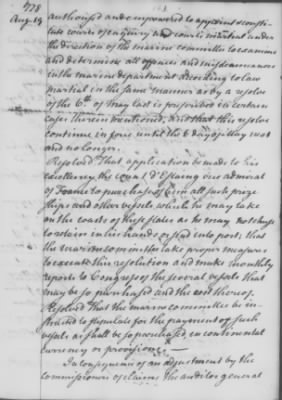 1778
Aug. 19
authorised and empowered to appoint & consti-
tute courts of enquiry and courts martial under
the direction of the marine committee to examine
and determine all offences and misdemeanors
in the marine department according to law
martial in the same manner as by a resolve
of the 6th of May last is prescribed in certain
cases therein mentioned, And that this resolve
continue in force until the day of May next
and no longer.
Resolved That application be made to his
excellency the count d'Estaing vice admiral
of France to purchase of him all such prize
ships and other vessels which he may take
on the coasts of these states as he may not chuse
to retain in his hands or send into ports; that
the marine committee take proper measures
to execute this resolution and make monthly
reports to Congress of the several vessels that
may be so purchased and the cost thereof.
Resolved That the marine committee be in-
structed to stipulate for the payment of such
vessels as shall be so purchased, in continental
currency or provisions.
In consequence of an adjustment by the
commissioners of claims, the auditor general